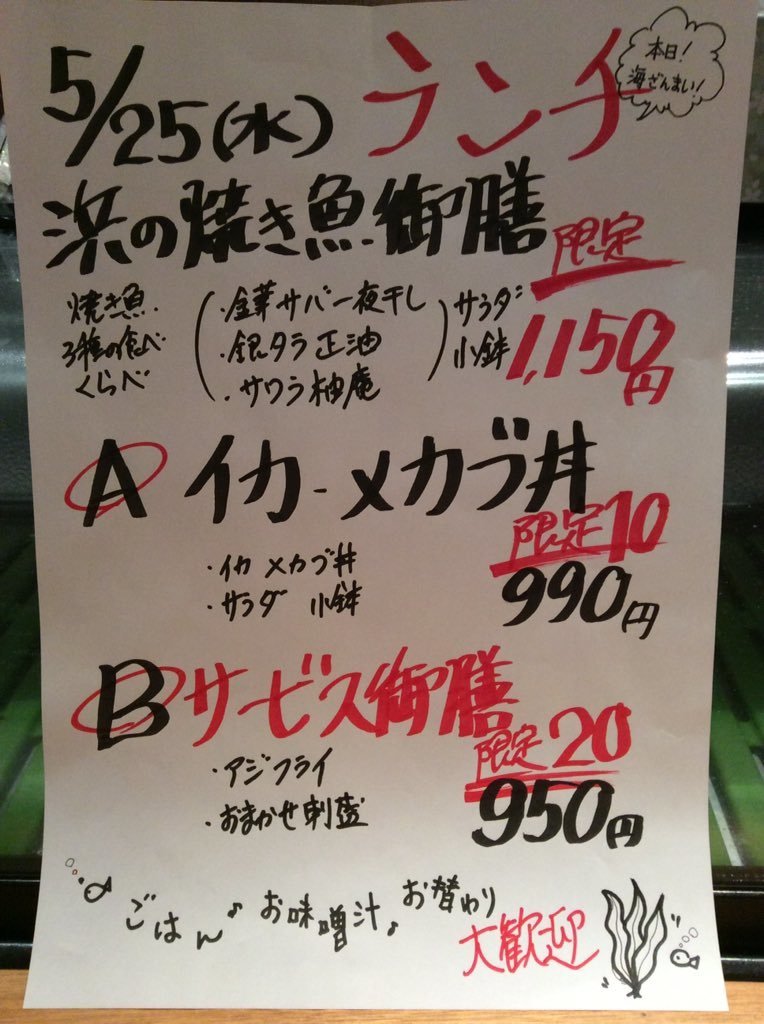 5/25(水) ランチ
本日!
海ざんまい!
浜の焼き魚御膳
限定
焼き魚
3種の食べ
くらべ
・金華サバ一夜干し
・銀ダラ正油
・サワラ柚庵
サラダ
小鉢
1,150円
A イカ-メカブ丼
限定10
・イカメカブ丼
・サラダ 小鉢
990円
Bサービス御膳
限定20
・アジフライ
・おまかせ刺盛
950円
ごはん♪ お味噌汁♪ お替わり
大歓迎